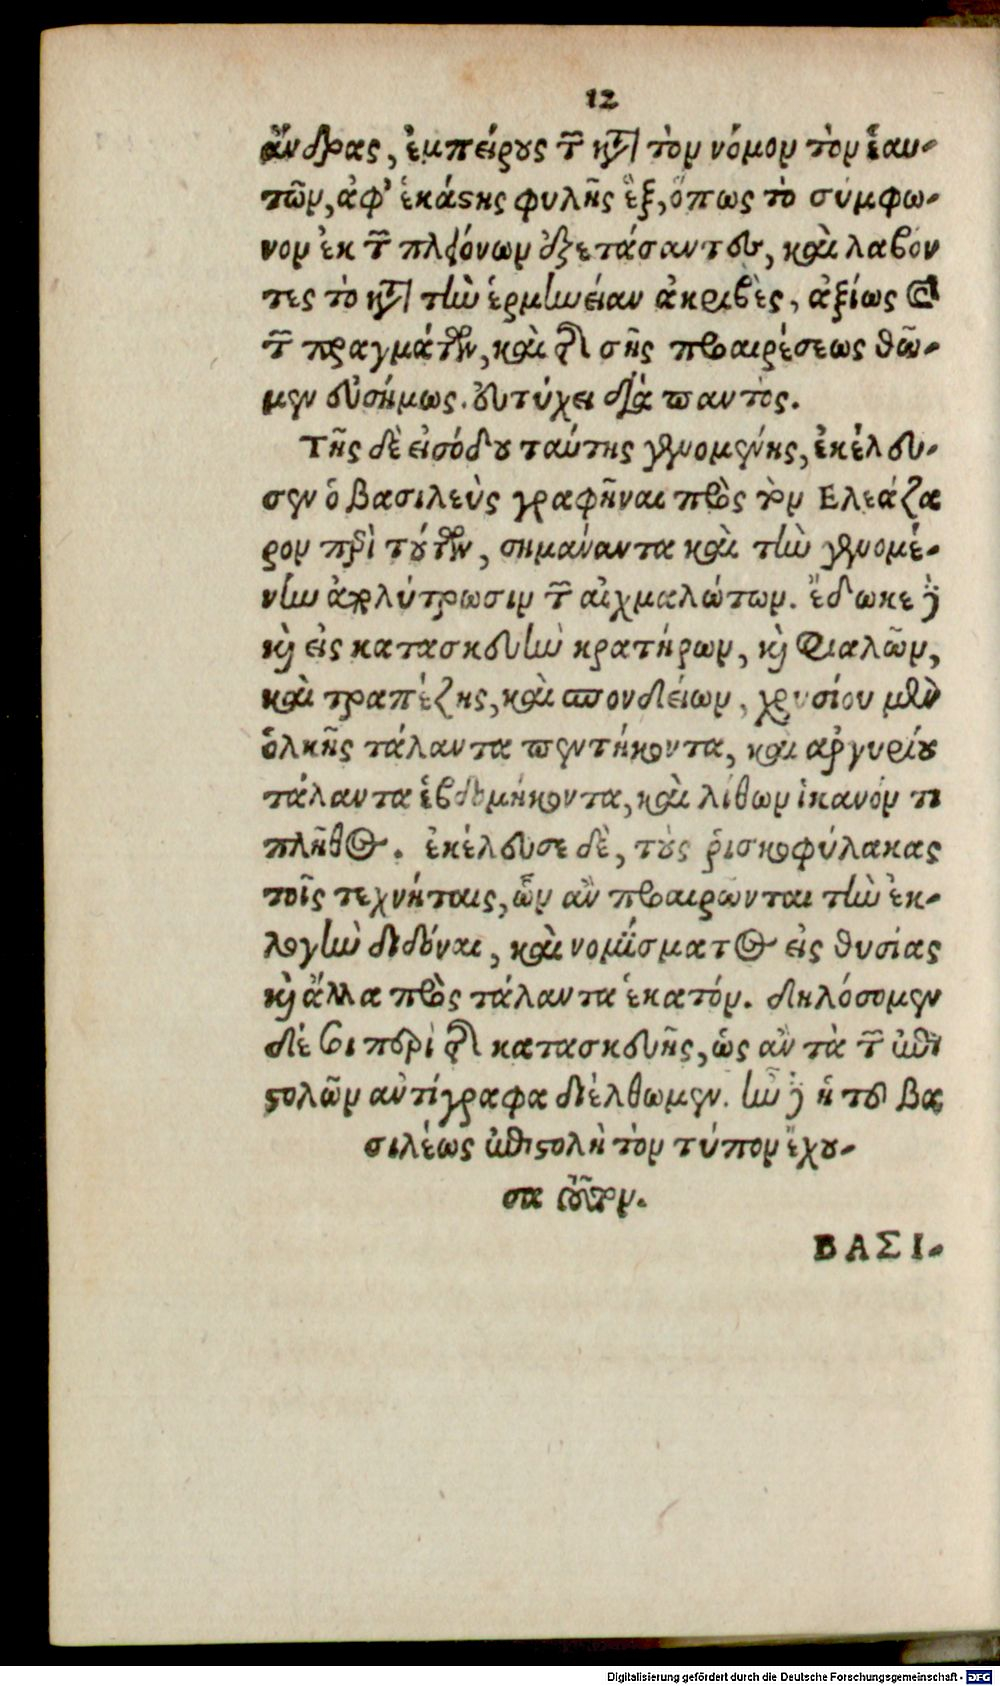 12
ἄνδρας, ἐμπείρους τῶν κατὰ τὸν νόμον τὸν ἑαυ-
τῶν, ἀφ' ἑκάστης φυλῆς ἓξ, ὅπως τὸ σύμφω-
νον ἐκ τῶν πλειόνων ἐξετάσαντες, καὶ λαβόν
τες τὸ κατὰ τὴν ἑρμηνείαν ἀκριβὲς, ἀξίως καὶ
τῶν πραγμάτων, καὶ τῆς σῆς προαιρέσεως θῶ-
μεν εὐσήμως. εὐτύχει διὰ παντὸς.
Τῆς δὲ εἰσόδου ταύτης γενομένης, ἐκέλευ-
σεν ὁ βασιλεὺς γραφῆναι πρὸς τὸν Ελεάζα
ρον περὶ τούτων, σημάναντα καὶ τὴν γενομέ-
νην ἀπολύτρωσιν τῶν αἰχμαλώτων. ἔδωκε δὲ
καὶ εἰς κατασκευὴν κρατήρων, καὶ φιαλῶν,
καὶ τραπέζης, καὶ σπονδείων, χρυσίου μὲν
ὁλκῆς τάλαντα πεντήκοντα, καὶ ἀργυρίου
τάλαντα ἑβδομήκοντα, καὶ λίθων ἱκανόν τι
πλῆθος. ἐκέλευσε δὲ, τοὺς ῥισκοφύλακας
τοῖς τεχνήταις, ὧν ἂν προαιρῶνται τὴν ἐκ-
λογὴν διδόναι, καὶ νομίσματος εἰς θυσίας
καὶ ἄλλα πρὸς τάλαντα ἑκατόν. δηλόσομεν
δέ σοι περὶ τῆς κατασκευῆς, ὡς ἂν τὰ τῶν ἐπι
στολῶν ἀντίγραφα διέλθωμεν. ἦν δὲ ἡ τοῦ βα
σιλέως ἐπιστολὴ τὸν τύπον ἔχου-
σα τοῦτον.
ΒΑΣΙ-
Digitalisierung gefördert durch die Deutsche Forschungsgemeinschaft - DFG